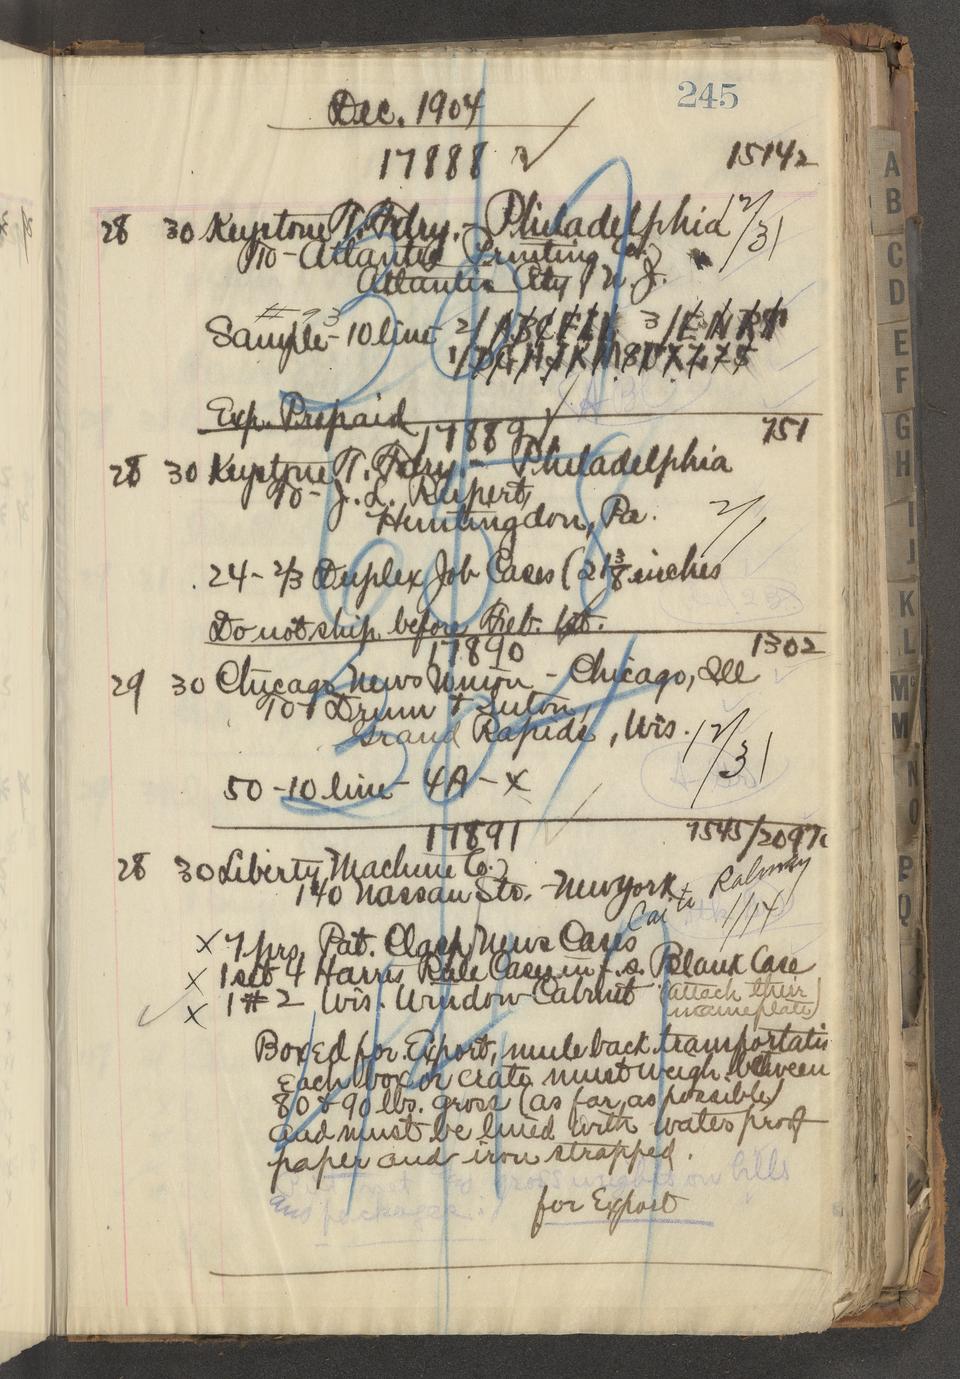 245
Dec. 1904
17888 15142
28 30 Keystone T. Fdry. - Philadelphia 12/31
To - Atlantic Printing Co.
Atlantic City, N. J.
#93
Sample - 10 line 2/ 3/
1/
Exp. Prepaid
17889 751
28 30 Keystone T. Fdry. - Philadelphia
To - J. L. Rupert,
Huntingdon, Pa. 2/1
24 - 2/3 Duplex Job Cases (21 3/8 inches
Do not ship before Feb. 1st.
17890 1302
29 30 Chicago News Union - Chicago, Ill
To Drumm & Sutor,
Grand Rapids, Wis. 12/31
50 - 10 line - 4A - X
17891 1545/2097
28 30 Liberty Machine Co.
140 Nassau St. - New York
1/14
X 7 prs. Pat. Clasp News Cases
X 1 set 4 Harris Rule Cases in f. s. Blank Case
X 1 #2 Wis. Window Cabinet (attach their
nameplate)
Boxed for Export, mule back transportatin
Each box or crate must weigh between
80 & 90 lbs. gross (as far as possible)
and must be lined with water proof
paper and iron strapped.
gross weights on bills
and packages.
for Export
A
B
C
D
E
F
G
H
I
J
K
L
Mc
M
N
O
P
Q